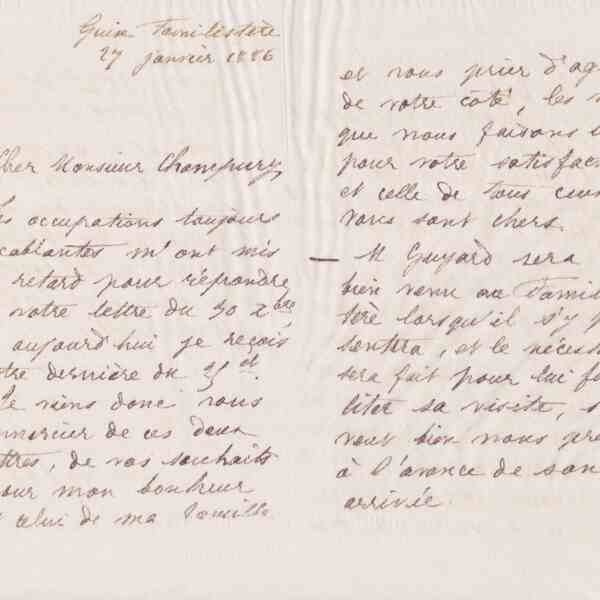 Guise Familistère
27 janvier 1886
Cher Monsieur Champury,
es occupations toujours
cablantes m'ont mis
retard pour répondre
votre lettre du 30 Xbre
aujourd'hui je reçois
tre dernière du 25 ct.
Je viens donc vous
mercier de ces deux
ttres, de vos souhaits
our mon bonheur
t celui de ma famille
et vous prier d'ag
de votre côté, les
que nous faisons
pour votre satisfac
et celle de tous ceux
vous sont chers.
— M Guyard sera
bien venu au Famil
tère lorsqu'il s'y
sentera, et le nécess
sera fait pour lui fa
liter sa visite, s
veut bien nous pré
à l'avance de son
arrivée.